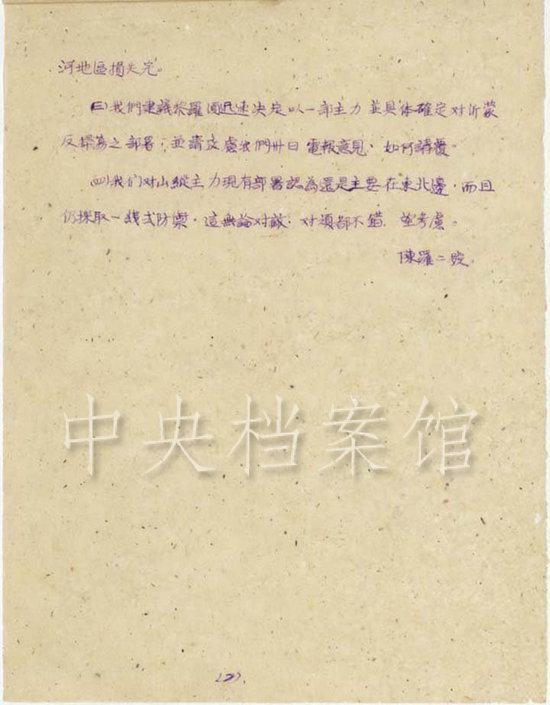 河地區損失完。
(三)我們建議黎羅 迅速决定以一部主力並具体確定对沂蒙
反掃蕩之部署；並請攷慮我們卅日電報意見，如何請覆。
(四)我们对山縱主力現有部署認為還是主要在東北邊，而且
仍採取一綫式防禦，這無論对敵，对頑都不錯，望考慮。
陳羅二
中央档案馆
(2)